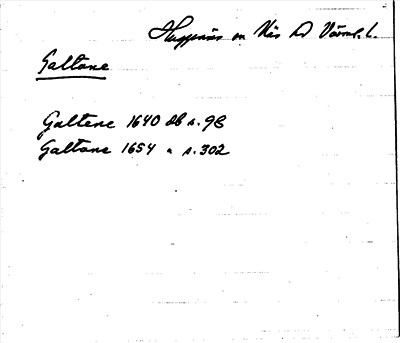 Huggenäs sn Näs hd Värml. l.
Galtane
Galtene 1640 DB s. 98
Galtane 1654 " s. 302